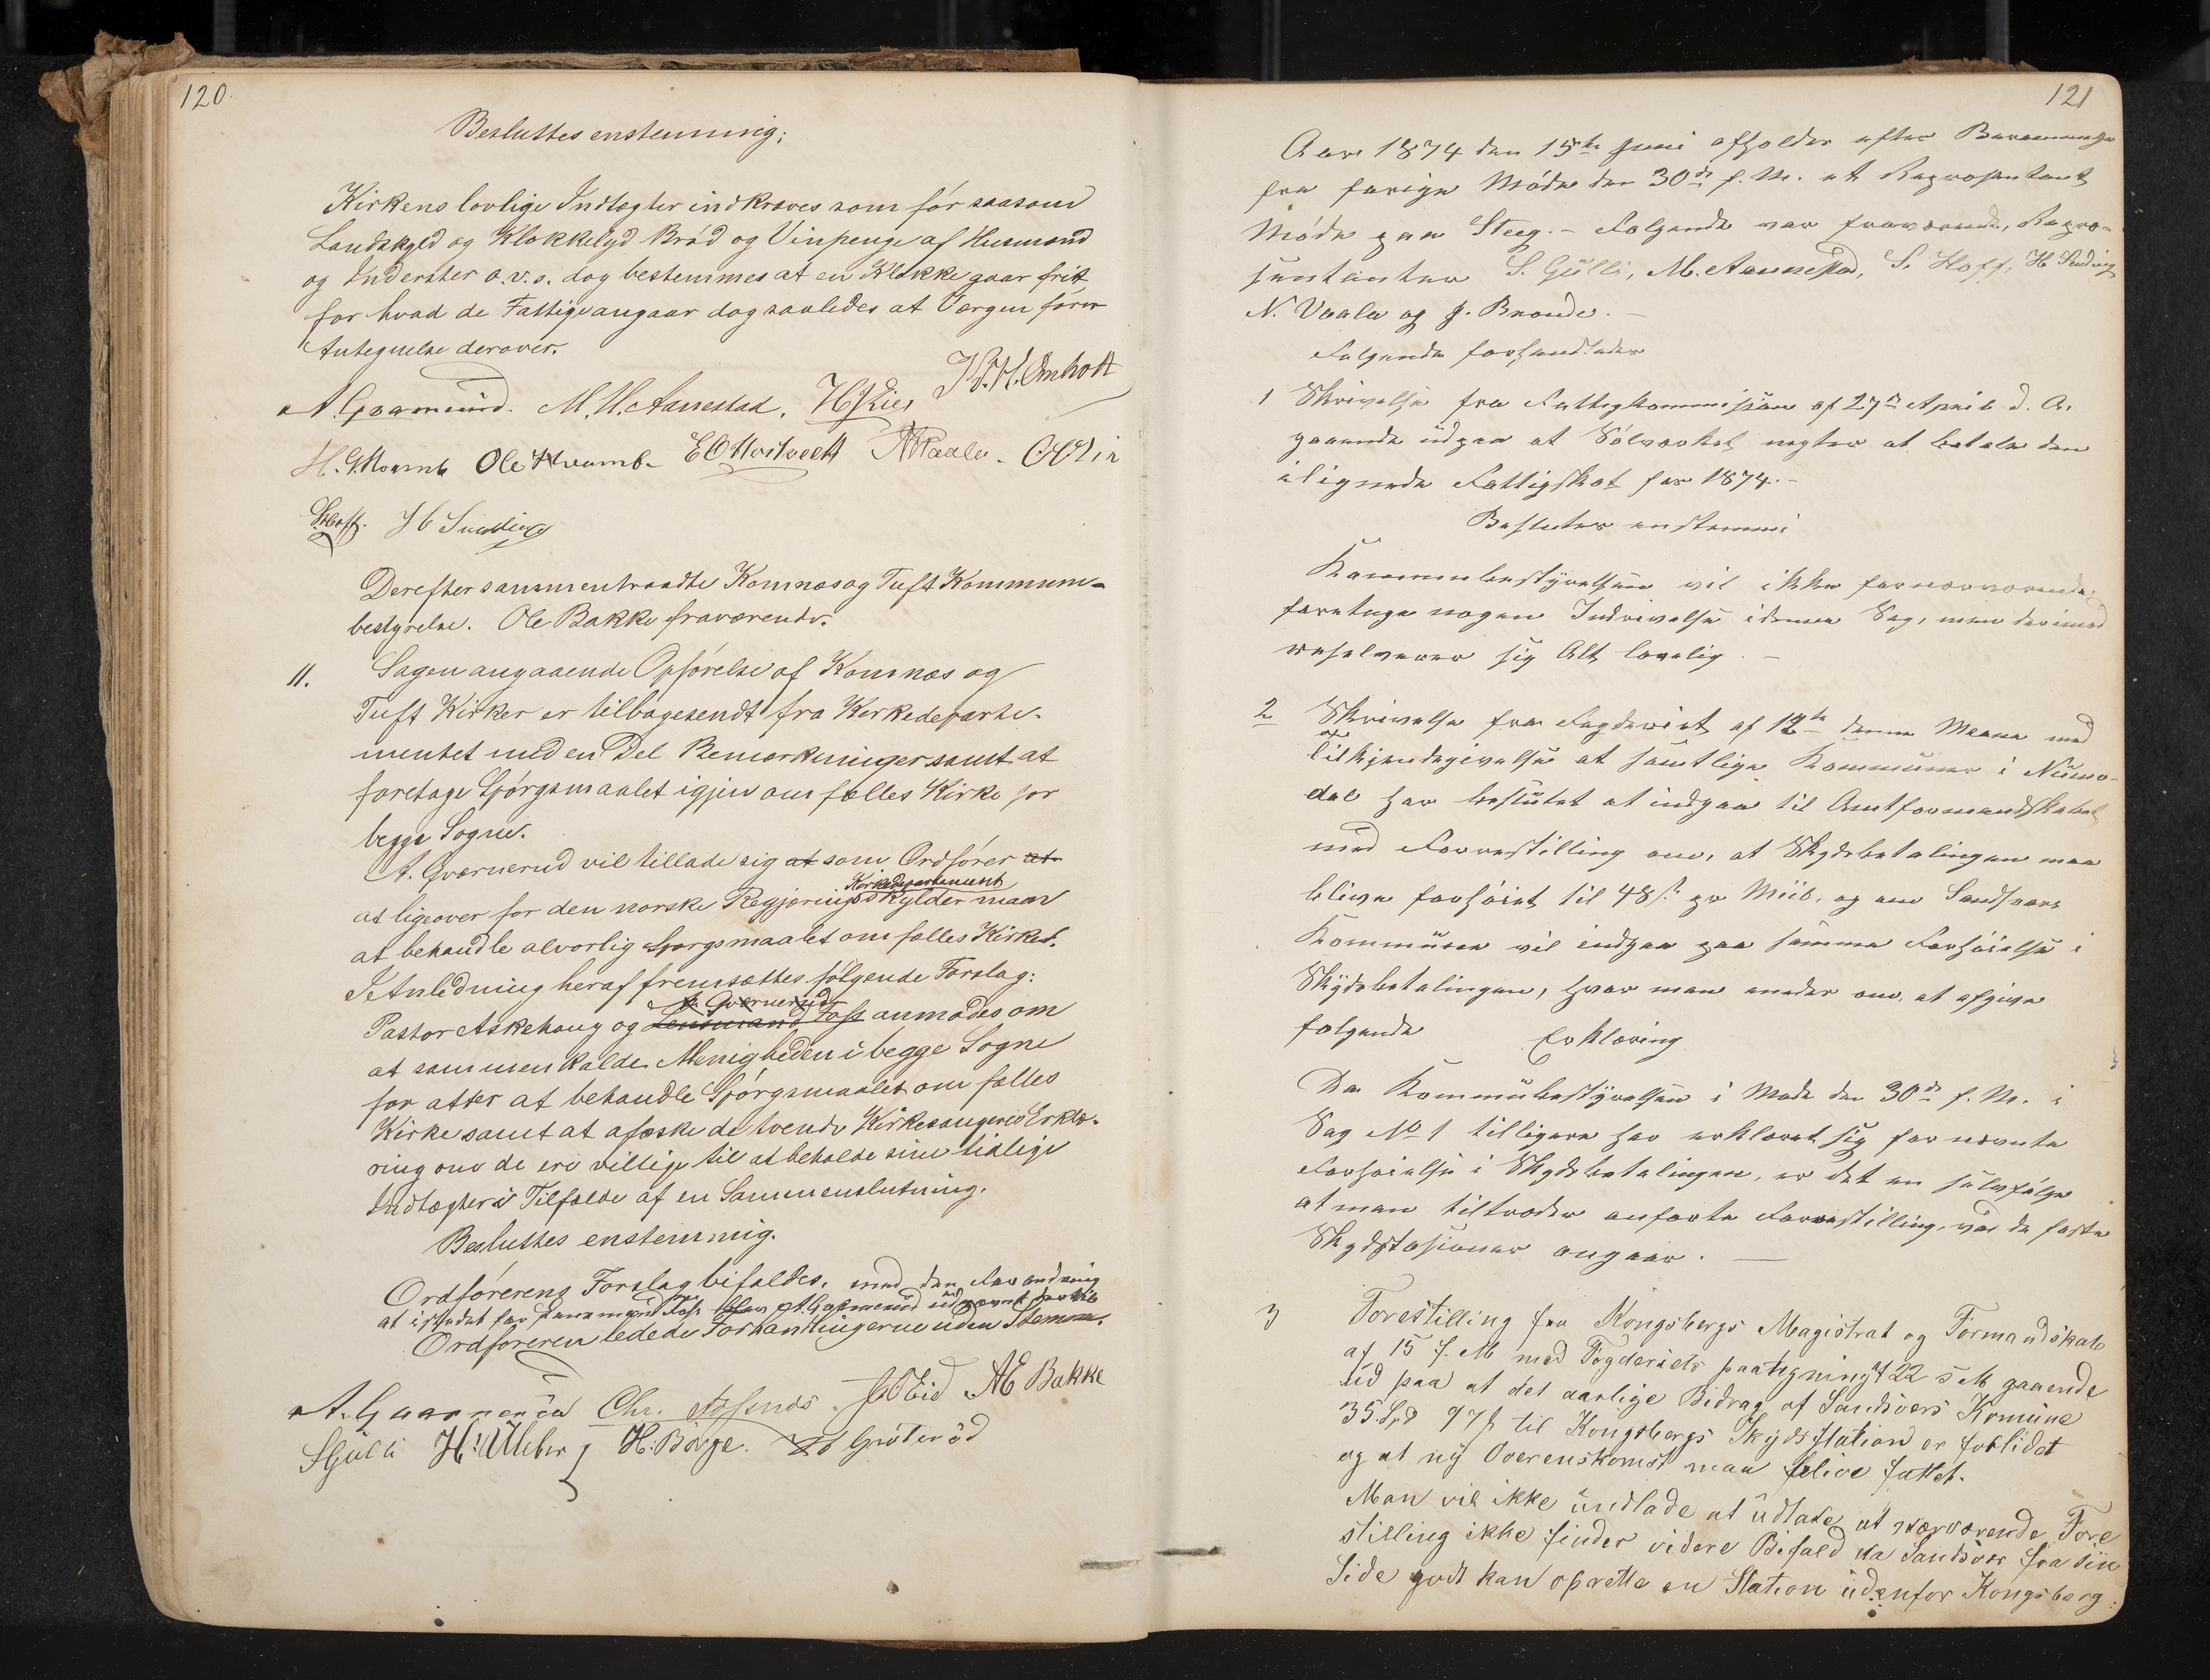 120.
Besluttes enstemmig:
Kirkens lovlige Indtægter indkræves som før saasom
Landskyld og Klokkelyd Brød og Vinpenge af Husmænd
og Inderster o.v.s. dog bestemmes at en Klokke gaar frit
for hvad de Fattige angaar dog saaledes at Værgen fører
Antegnelse derover.
M. H. Aannestad.
Ole Kvamb.
H Sunding
Derefter sammentraadte Komnæs og Tuft Kommune-
bestyrelse. Ole Bakke fraværende.
11. Sagen angaaende Opførelse af Komnæs og
Tuft Kirker er tilbagesendt fra Kirkedeparte-
mentet med en Del Bemærkninger samt at
foretage Spørgsmaalet igjen om fælles Kirke for
begge Sogne.
A. Gværnerud vil tillade sig at som Ordfører at
Kirkedepartement
at ligeover for den norske Regjerings skylder man
at behandle alvorlig Spørgsmaalet om fælles Kirke.
I Anledning heraf fremsættes følgende Forslag:
A. Gværnerud
Pastor Askehoug og Lensmand Foss anmodes om
at sammenkalde Menigheden i begge Sogne
for atter at behandle Spørgsmaalet om fælles
Kirke samt at afæske de tvende Kirkesangeres Erklæ-
ring om de ere villige til at beholde sine tidlige
Indtægter i Tilfælde af en Sammenslutning.
Besluttes enstemmig.
Ordførerens Forslag bifaldes, med den Forandring
at istedet for Lensmand Foss A. Gværnerud udnævnt dertil
Ordføreren ledede Forhandlingerne uden Stemme.
A. Gværnerud Chr. A E Bakke
H. Børge.
121
Aar 1874 den 15de Juni afholdes efter Berammelse
fra forige Møde den 30de f. M. et Repræsentant
Møde paa Steeg. – Følgende var fraværende, Repræ-
sentanter S. Gülli, M. Aannestad, S. Hoff, H Sunding
N. Vaala og J. Bronde. –
Følgende forhandledes
1 Skrivelse fra Fattigkommissionen af 27de April d. A.
gaaende ud paa at Sølvverket negter at betale den
ilignede Fattigskat for 1874. –
Besluttes enstemmi
Kommunebestyrelsen vil ikke for nærværende
foretage nogen Inddrivelse i denne Sag, men derimod
reserverer sig Alt lovelig. –
2 Skrivelse fra Fogderiet af 12te denne Maane med
af
tilkjendegivelse at samtlige Kommuner i Numme-
dal har besluttet at indgaa til Amtformandskabet
med Forrestilling om, at Skydsbetalingen maa
blive forhøiet til 48 s. pr Miil, og om Sandsvers
Kommune vil indgaa paa samme Forhøielse i
Skydsbetalingen, hvor man aneder om at afgive
følgende Erklæring
Da Kommubestyrelsen i Møde den 30de f. M. i
Sag No 1 tilligere har erklæret sig for nævnte
Forhøielse i Skydsbetalingen, er det en selvfølge
at man tiltræder anførte Forrestilling, vad de faste
Skydsstasioner angaar. —
3 Forestilling fra Kongsbergs Magistrat og Formandskab
af 15 f. M med Fogderiets paategning af 22 s M gaaende
ud paa at det aarlige Bidrag af Sandsvers Komune
35 Spd 97 s til Kongsbergs Skydsstation er forlidet
og at ny Overenskomst maa blive fattet.
Man vil ikke undlade at udtale at nærværende Fore
stilling ikke finder videre Bifald da Sandsver fra sin
Side godt kan oprette en Station udenfor Kongsberg